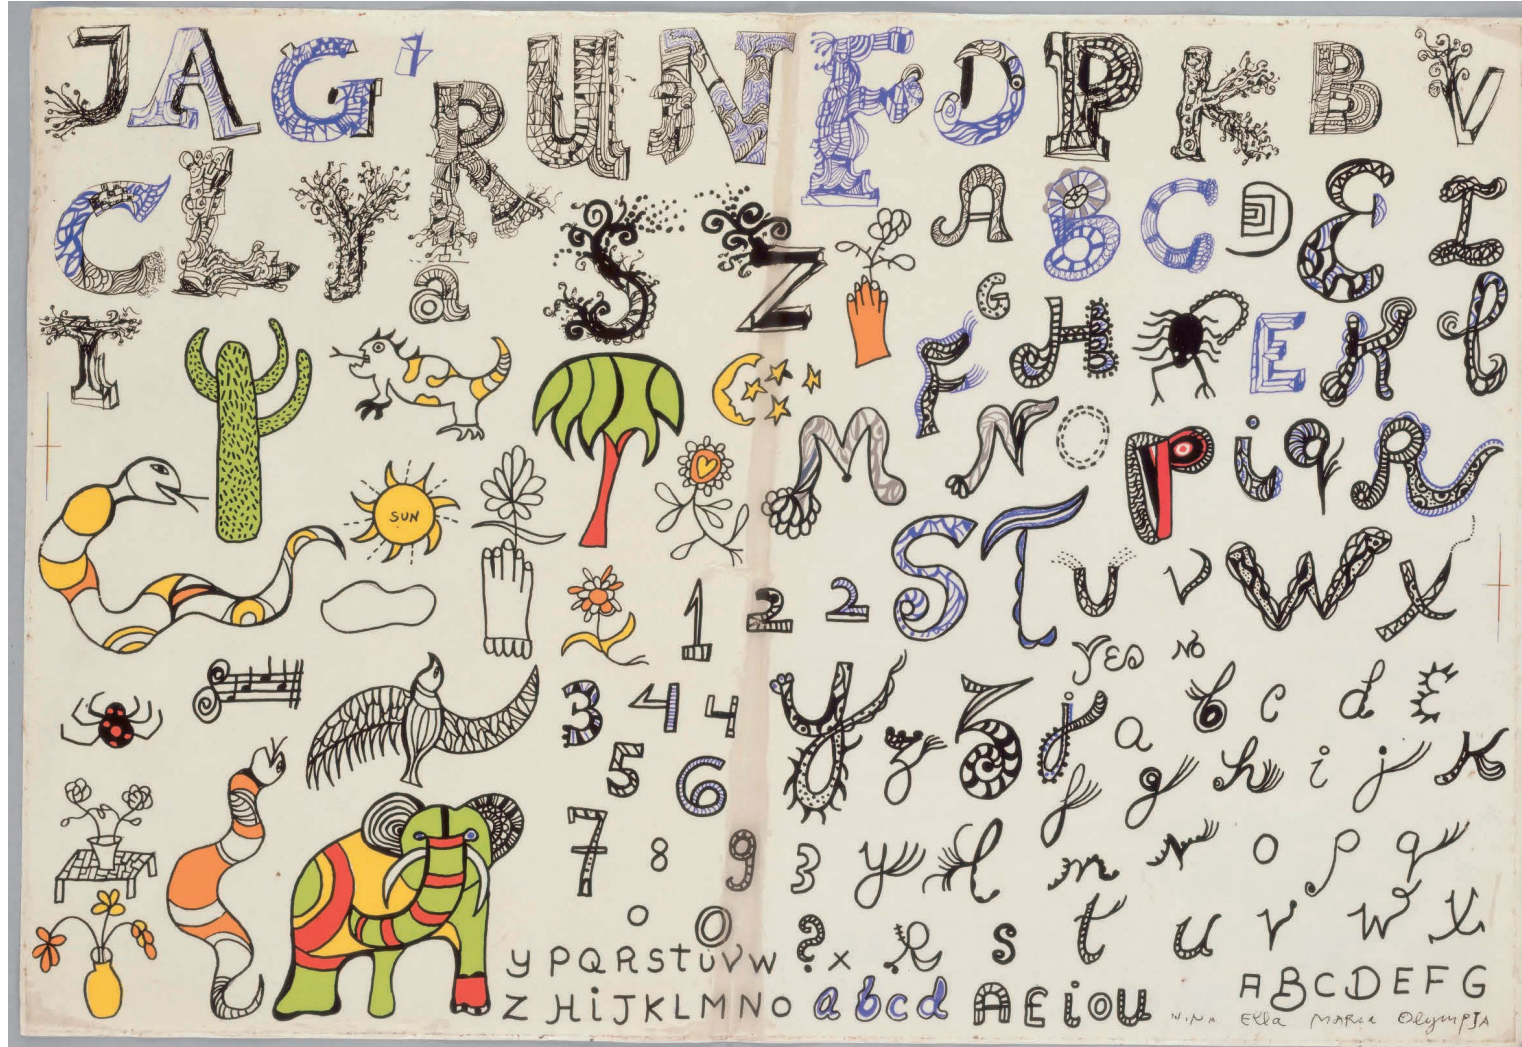 J A G 1 R U N F D P K B V
C L Y a S Z A B C D E I
I G F H E K l
M N O P i q R
SUN
1 2 2 S T U V W X
YES NO
3 4 4 y z 3 j a b c d E
5 6 f g h i j K
7 8 9 3 y l m n o p q
0 0 ? x R s t u v w x
y P Q R S t U V W
Z H i J K L M N O a b c d A E i o u
A B C D E F G
NINA Ella MARIA OlympIA